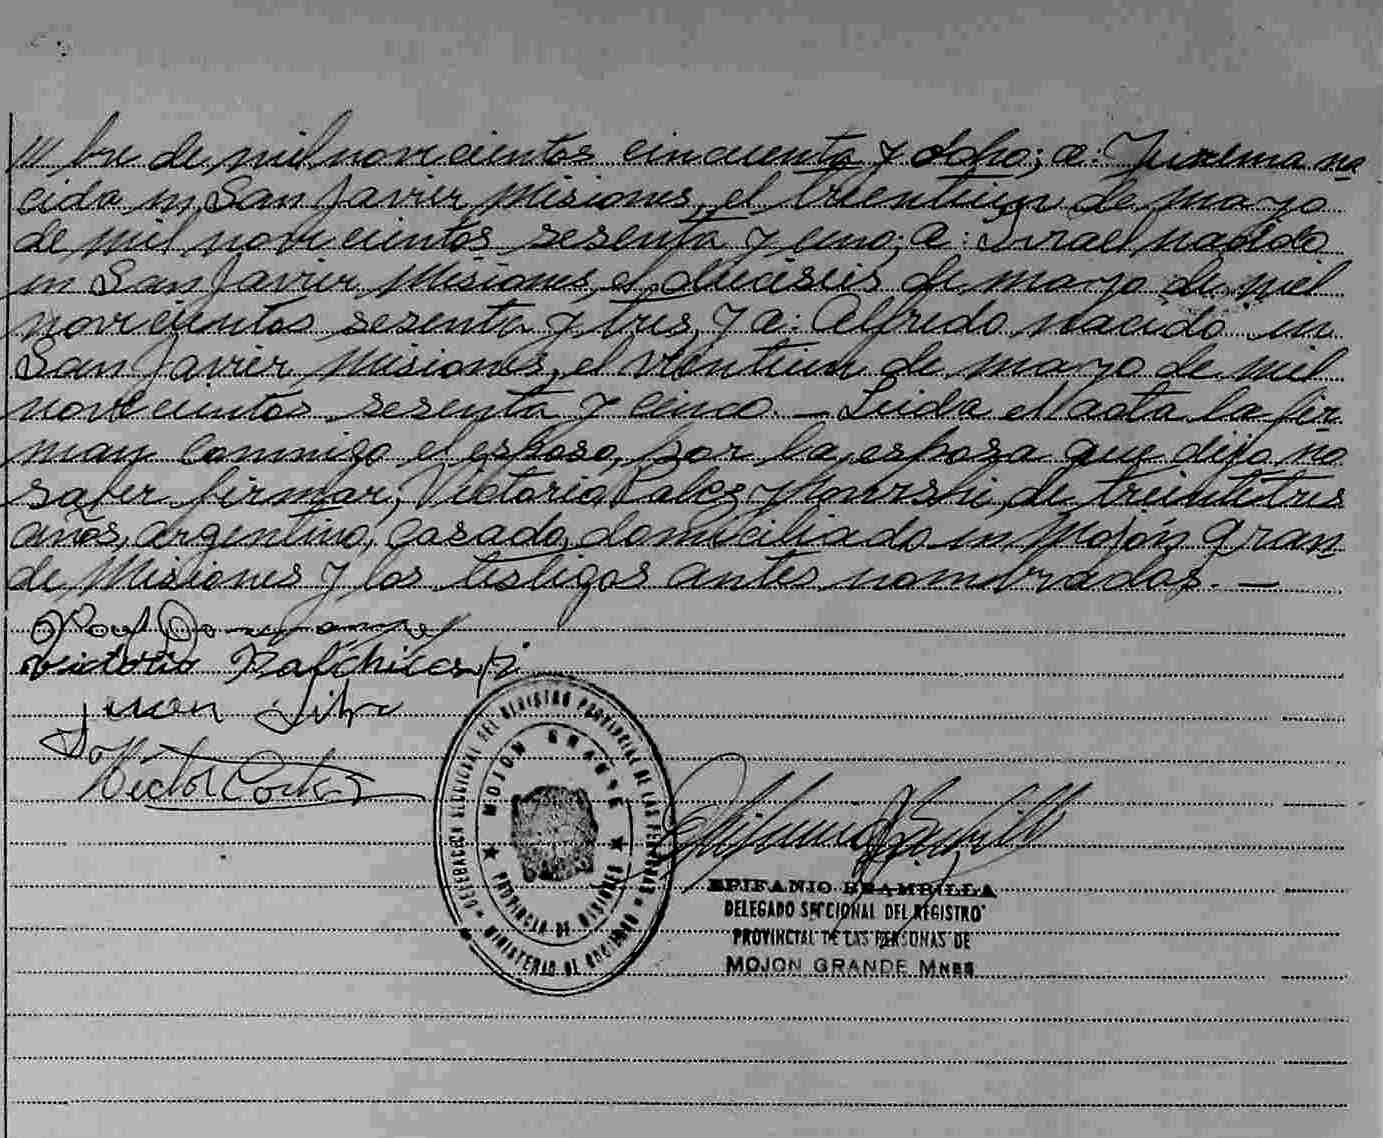 /// bre de mil novecientos cincuenta y ocho; a: Jurema na
cida en San Javier Misiones, el treintiun de mayo
de mil novecientos sesenta y uno; a: Israel nacido
en San Javier Misiones, el dieciseis de mayo de mil
novecientos sesenta y tres, y a: Alfredo nacido en
San Javier Misiones, el veintiun de mayo de mil
novecientos sesenta y cinco. — Leida el acta la fir
man conmigo el esposo, por la esposa que dijo no
saber firmar, Victorio, de treintitres
años, argentino, casado, domiciliado en Mojón Gran
de Misiones y los testigos antes nombrados. —
Victorio
Juan Silva
Victor
DELEGACION SECCIONAL DEL REGISTRO PROVINCIAL DE LAS PERSONAS
MOJON GRANDE
PROVINCIA DE MISIONES
MINISTERIO DE GOBIERNO
EPIFANIO BRAMBILLA
DELEGADO SECCIONAL DEL REGISTRO
PROVINCIAL DE LAS PERSONAS DE
MOJON GRANDE MNES